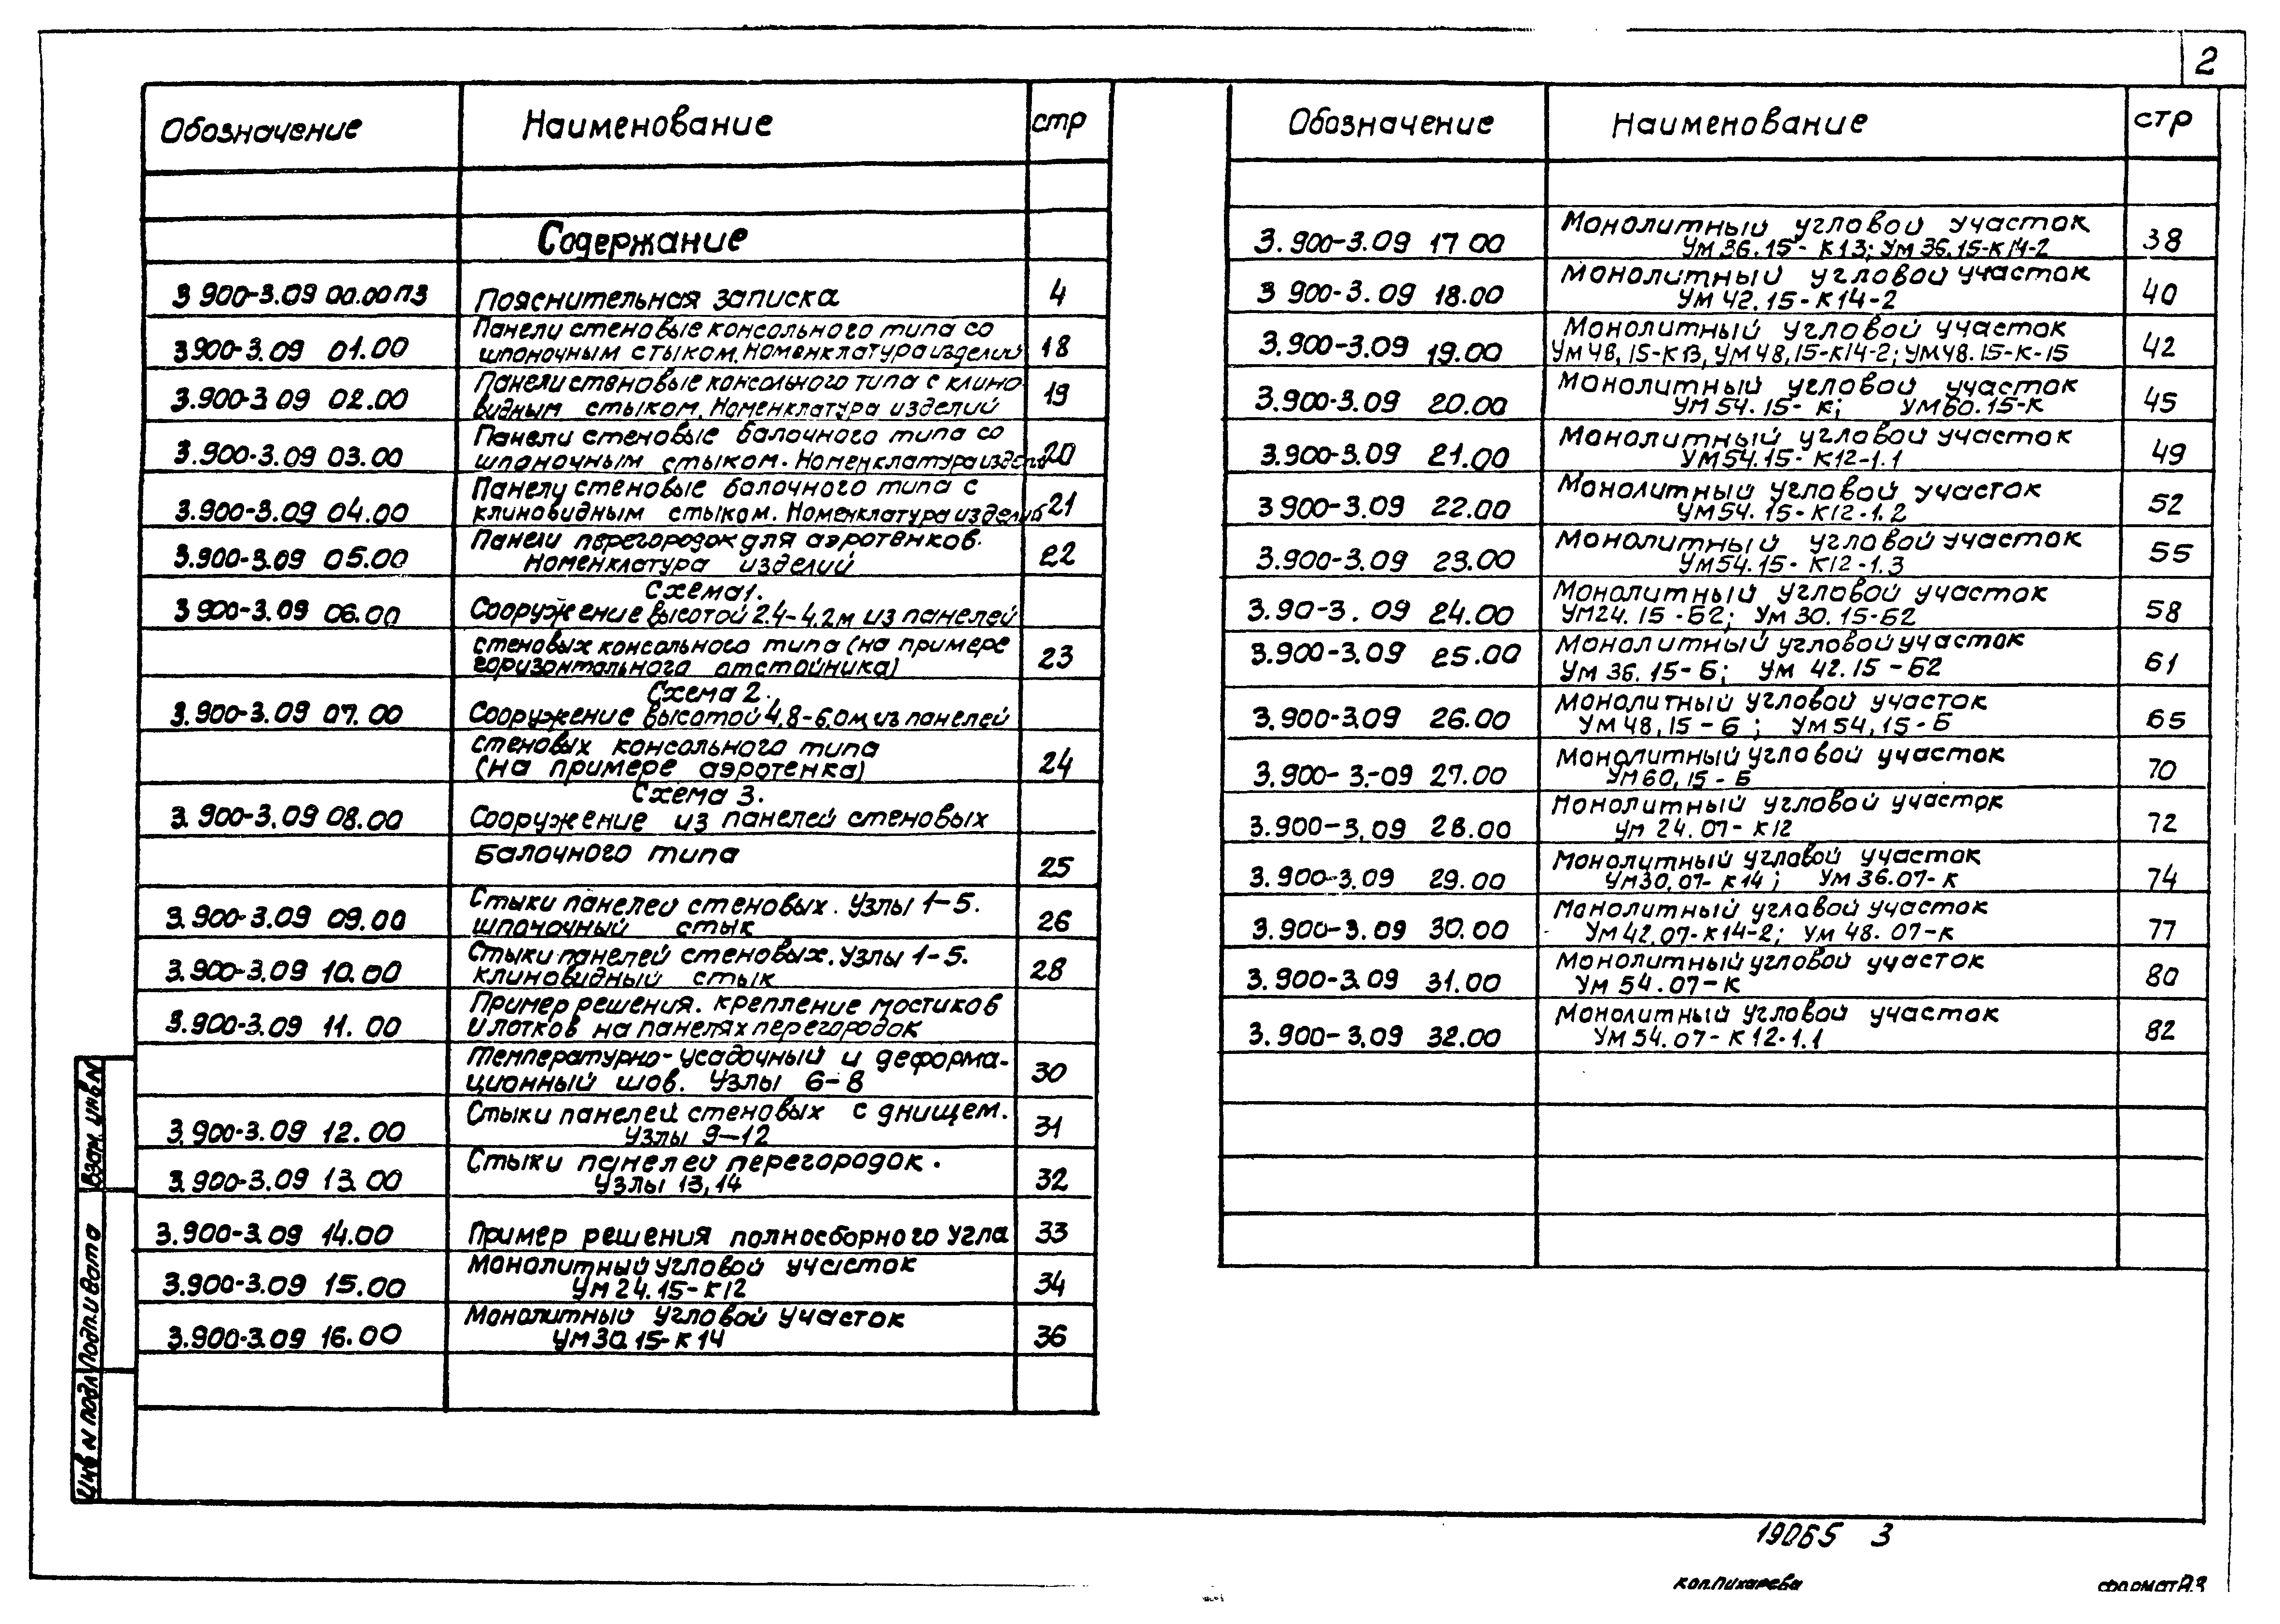 2
Обозначение Наименование стр
Содержание
3 900-3.09 00.00ПЗ Пояснительная записка 4
Панели стеновые консольного типа со
3.900-3.09 01.00 шпоночным стыком. Номенклатура изделий 18
Панели стеновые консольного типа с клино-
3.900-3.09 02.00 видным стыком. Номенклатура изделий 19
Панели стеновые балочного типа со
3.900-3.09 03.00 шпоночным стыком. Номенклатура издели 20
Панели стеновые балочного типа с
3.900-3.09 04.00 клиновидным стыком. Номенклатура изделий 21
Панели перегородок для аэротенков.
3.900-3.09 05.00 Номенклатура изделий 22
Схема 1.
3 900-3.09 06.00 Сооружение высотой 2.4-4.2м из панелей
стеновых консольного типа (на примере
горизонтального отстойника) 23
Схема 2.
3.900-3.09 07.00 Сооружение высотой 4,8-6.0м из панелей
стеновых консольного типа
(на примере аэротенка) 24
Схема 3.
3.900-3.09 08.00 Сооружение из панелей стеновых
балочного типа 25
Стыки панелей стеновых. Узлы 1-5.
3.900-3.09 09.00 шпоночный стык 26
Стыки панелей стеновых. Узлы 1-5.
3.900-3.09 10.00 клиновидный стык 28
Пример решения. крепление мостиков
3.900-3.09 11.00 и лотков на панелях перегородок
Температурно-усадочный и деформа-
ционный шов. Узлы 6-8 30
Стыки панелей стеновых с днищем.
3.900-3.09 12.00 Узлы 9-12 31
Стыки панелей перегородок.
3.900-3.09 13.00 Узлы 13,14 32
3.900-3.09 14.00 Пример решения полносборного угла 33
Монолитный угловой участок
3.900-3.09 15.00 Ум 24.15-К12 34
Монолитный угловой участок
3.900-3.09 16.00 Ум 30.15-К14 36
Обозначение Наименование стр
Монолитный угловой участок
3.900-3.09 17 00 Ум 36.15-К13; Ум 36.15-К14-2 38
Монолитный угловой участок
3 900-3.09 18.00 Ум 42.15-К14-2 40
Монолитный угловой участок
3.900-3.09 19.00 Ум 48,15-К13, Ум 48,15-К14-2; Ум48.15-К-15 42
Монолитный угловой участок
3.900-3.09 20.00 Ум 54.15-К; Ум60.15-К 45
Монолитный угловой участок
3.900-3.09 21.00 Ум54.15-К12-1.1 49
Монолитный угловой участок
3 900-3.09 22.00 Ум54.15-К12-1.2 52
Монолитный угловой участок
3.900-3.09 23.00 Ум54.15-К12-1.3 55
Монолитный угловой участок
3.90-3.09 24.00 Ум24.15-Б2; Ум 30.15-Б2 58
Монолитный угловой участок
3.900-3.09 25.00 Ум 36.15-Б; Ум 42.15-Б2 61
Монолитный угловой участок
3.900-3.09 26.00 Ум 48,15-Б; Ум 54,15-Б 65
Монолитный угловой участок
3.900-3.-09 27.00 Ум60,15-Б 70
Монолитный угловой участок
3.900-3.09 28.00 Ум 24.07-К12 72
Монолитный угловой участок
3.900-3.09 29.00 Ум30,07-К14; Ум 36.07-К 74
Монолитный угловой участок
3.900-3.09 30.00 Ум 42.07-К14-2; Ум 48.07-К 77
Монолитный угловой участок
3.900-3.09 31.00 Ум 54.07-К 80
Монолитный угловой участок
3.900-3.09 32.00 Ум 54.07-К12-1.1 82
Взам. инв N
Подп. и дата
Инв N подл
19065 3
коп.Пихарева
формат А.3